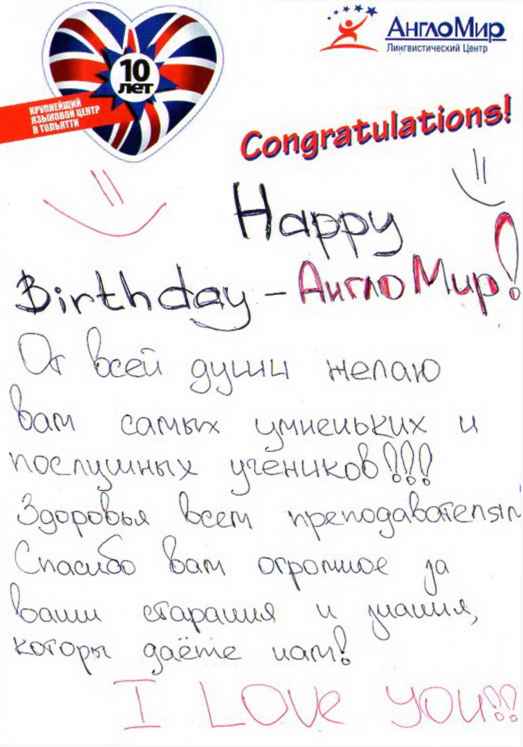 10
ЛЕТ
КРУПНЕЙШИЙ
ЯЗЫКОВОЙ ЦЕНТР
В ТОЛЬЯТТИ
АнглоМир
Лингвистический Центр
Congratulations!
Happy
Birthday – АнглоМир!
От всей души желаю
вам самых умненьких и
послушных учеников!!!
Здоровья всем преподавателям
Спасибо вам огромное за
ваши старания и знания,
которы даёте нам!
I LOVE YOU!!!